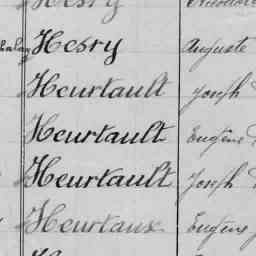 Hesry
Hesry Auguste
Heurtault Joseph
Heurtault Eugène
Heurtault Joseph
Heurtaux Eugène